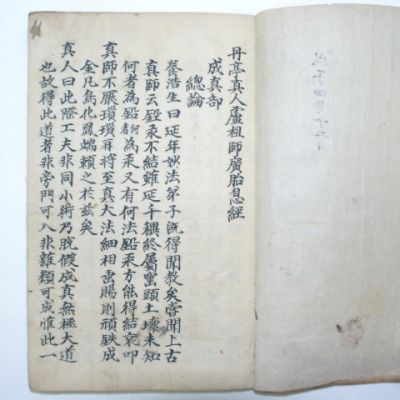 丹亭真人盧祖師廣胎息經
成真部
總論
養浩生曰延年妙法弟子既得聞教矣嘗聞上古
真師云鉛汞不結雖延千禩終屬窰頭土壞未知
何者為鉛何為汞又有何法鉛汞方能得結京叩
真師不厭瑣瑣再將至真大法細相垂賜則頑鉄成
金凡鳥化鳳端賴之於茲矣
真人曰此際工夫非同小術乃脫僾成真無極大道
也故得此道者非旁門可入非雜類可成惟此一